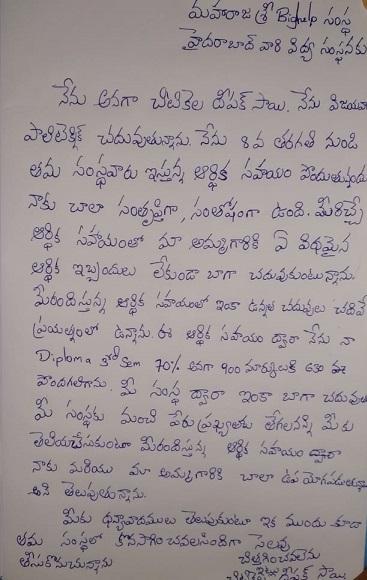 మహారాజ శ్రీ Bighelp సంస్థ
హైదరాబాద్ వారి విద్య సంస్థనకు
నేను అనగా చీటికెల దీపక్ సాయి. నేను విజయవా
పాలిటెక్నిక్ చదువుతున్నాను. నేను 8 వ తరగతి నుండి
తమ సంస్థవారు ఇస్తున్న ఆర్థిక సహాయం పొందుతున్నందు
నాకు చాలా సంతృప్తిగా, సంతోషంగా ఉంది. మీరిచ్చే
ఆర్థిక సహాయంతో మా అమ్మగారికి ఏ విధమైన
ఆర్థిక ఇబ్బందులు లేకుండా బాగా చదువుకుంటున్నాను.
మీరందిస్తున్న ఆర్థిక సహాయంతో ఇంకా ఉన్నత చదువులు చదివే
ప్రయత్నంలో ఉన్నాను. ఈ ఆర్థిక సహాయం ద్వారా నేను నా
Diploma Sem 70% అనగా 900 మార్కులకి 630
పొందగలిగాను. మీ సంస్థ ద్వారా ఇంకా బాగా చదువుత
మీ సంస్థకు మంచి పేరు ప్రఖ్యాతులు తేగలనని మీకు
తెలియచేసుకుంటూ మీరందిస్తున్న ఆర్థిక సహాయం ద్వారా
నాకు మరియు మా అమ్మగారికి చాలా ఉపయోగపడుతున్న
అని తెలుపుతున్నాను.
మీకు ధన్యవాదములు తెలుపుకుంటూ ఇక ముందు కూడా
తమ సంస్థలో కొనసాగించవలసిందిగా సెలవు
తీసుకొనుచున్నాను చిత్తగించవలెను
దీపక్ సాయి